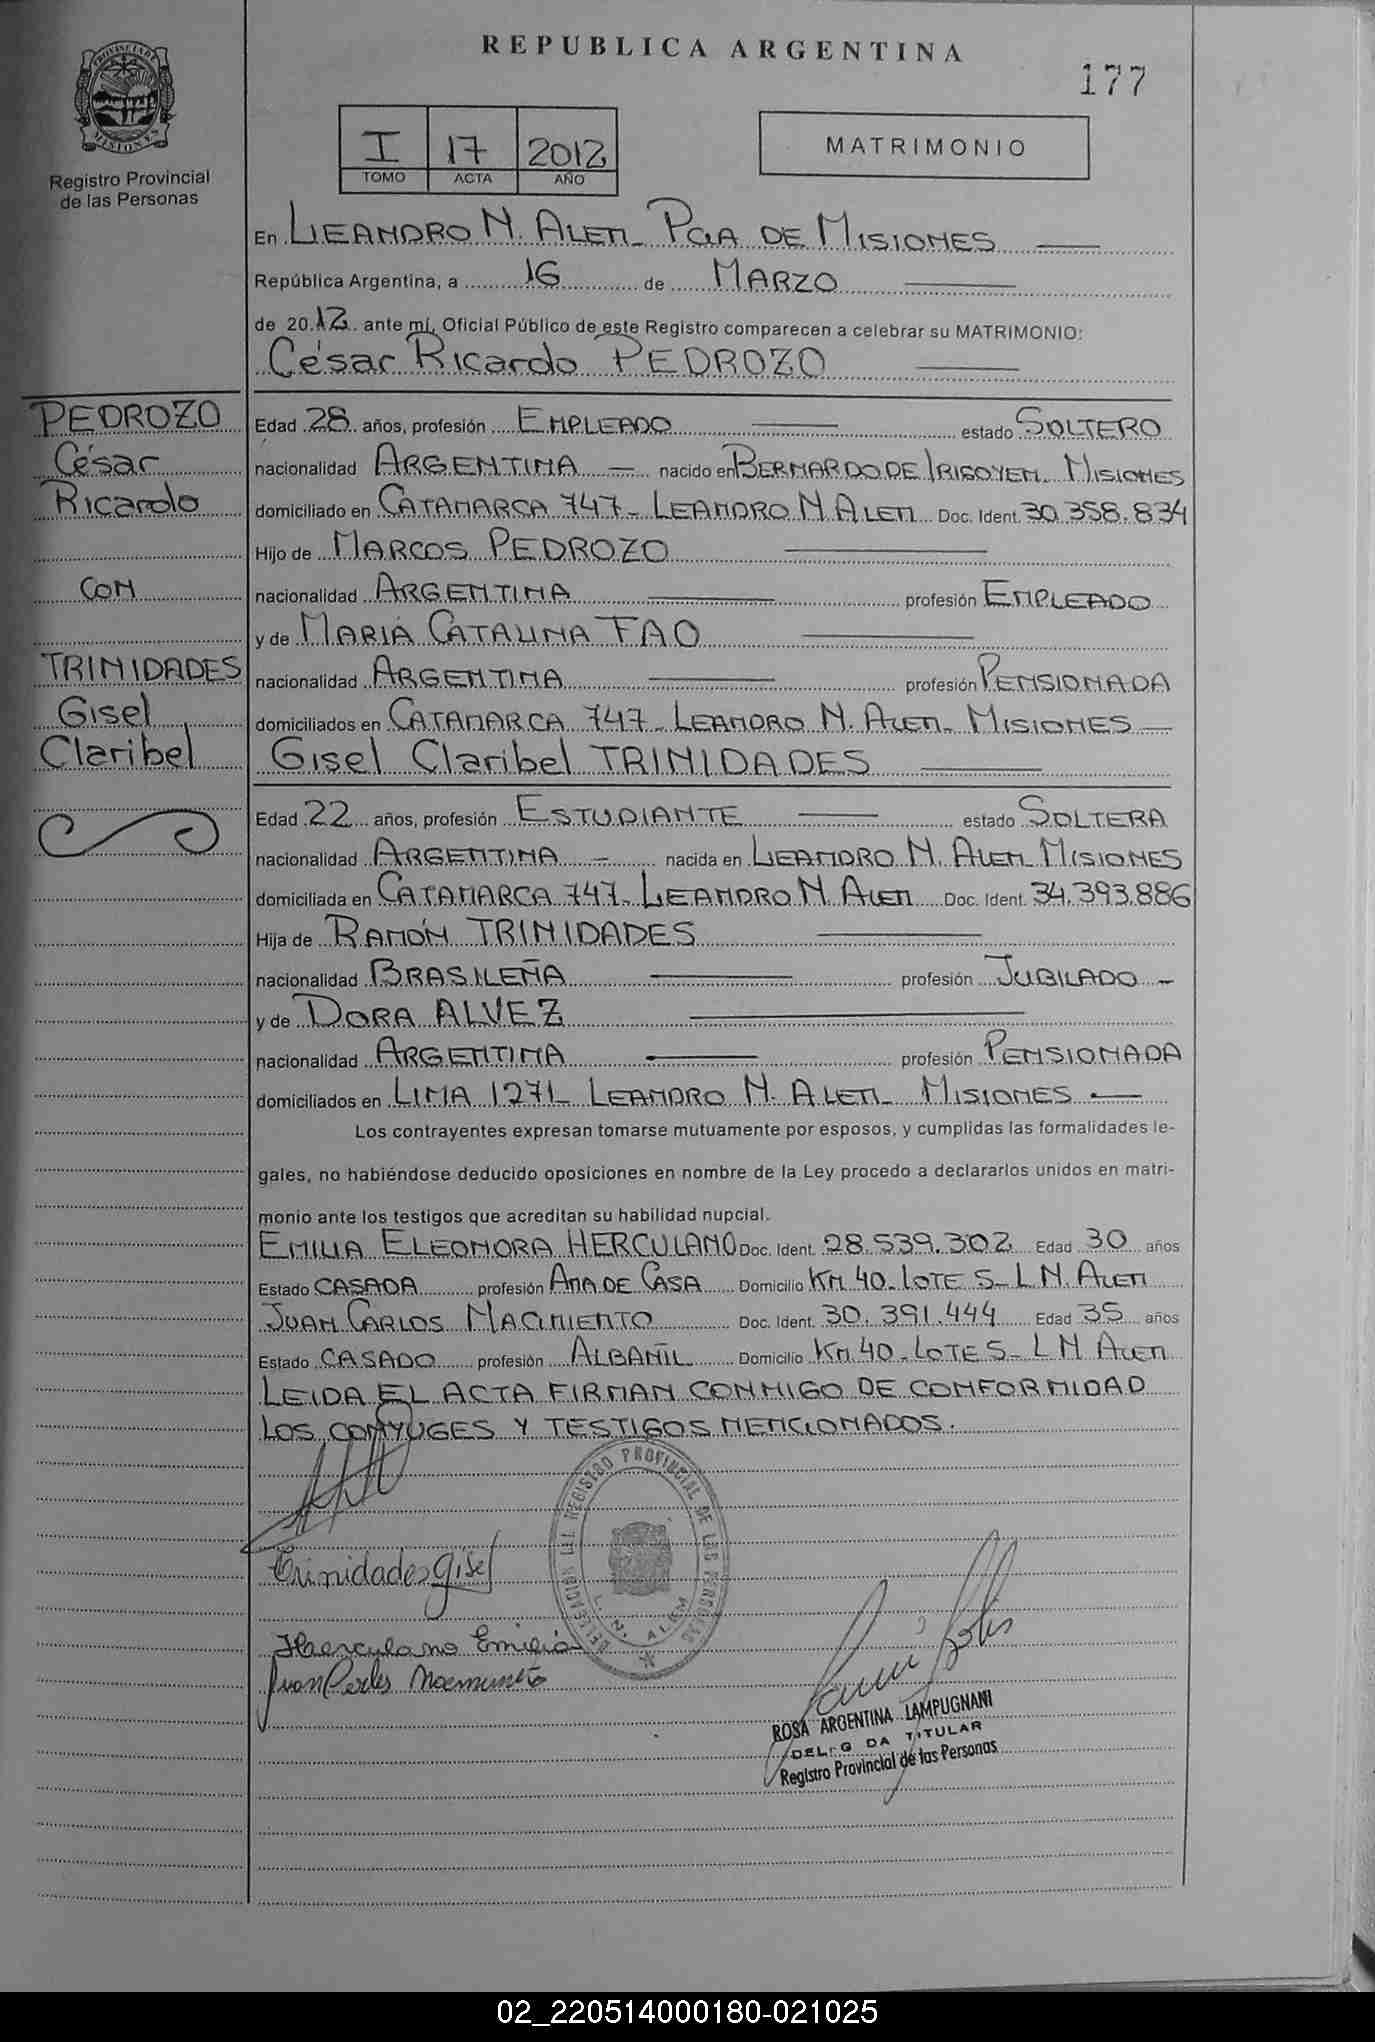 REPUBLICA ARGENTINA
177
PROVINCIA DE MISIONES
Registro Provincial
de las Personas
I 17 2012
TOMO ACTA AÑO
MATRIMONIO
En LEANDRO N. ALEM - Pcia DE MISIONES
República Argentina, a 16 de MARZO
de 2012 ante mí, Oficial Público de este Registro comparecen a celebrar su MATRIMONIO:
César Ricardo PEDROZO
PEDROZO
César
Ricardo
CON
TRINIDADES
Gisel
Claribel
Edad 28 años, profesión EMPLEADO estado SOLTERO
nacionalidad ARGENTINA - nacido en BERNARDO DE IRIGOYEN - MISIONES
domiciliado en CATAMARCA 747 - LEANDRO N ALEM Doc. Ident. 30.358.834
Hijo de MARCOS PEDROZO
nacionalidad ARGENTINA profesión EMPLEADO
y de MARIA CATALINA FAO
nacionalidad ARGENTINA profesión PENSIONADA
domiciliados en CATAMARCA 747 - LEANDRO N. ALEM - MISIONES
Gisel Claribel TRINIDADES
Edad 22 años, profesión ESTUDIANTE estado SOLTERA
nacionalidad ARGENTINA - nacida en LEANDRO N. ALEM - MISIONES
domiciliada en CATAMARCA 747 - LEANDRO N ALEM Doc. Ident. 34.393.886
Hija de RAMÓN TRINIDADES
nacionalidad BRASILEÑA profesión JUBILADO -
y de DORA ALVEZ
nacionalidad ARGENTINA profesión PENSIONADA
domiciliados en LIMA 1271 - LEANDRO N. ALEM - MISIONES
Los contrayentes expresan tomarse mutuamente por esposos, y cumplidas las formalidades le-
gales, no habiéndose deducido oposiciones en nombre de la Ley procedo a declararlos unidos en matri-
monio ante los testigos que acreditan su habilidad nupcial.
EMILIA ELEONORA HERCULANO Doc. Ident. 28.539.302 Edad 30 años
Estado CASADA profesión AMA DE CASA Domicilio KM 40 - LOTE 5 - L N. ALEM
JUAN CARLOS NACIMIENTO Doc. Ident. 30.391.444 Edad 35 años
Estado CASADO profesión ALBAÑIL Domicilio KM 40 - LOTE 5 - L N ALEM
LEIDA EL ACTA FIRMAN CONMIGO DE CONFORMIDAD
LOS CONYUGES Y TESTIGOS MENCIONADOS.
REGISTRO PROVINCIAL DE LAS PERSONAS
L. N. ALEM
Trinidades Gisel
Herculano Emilia
Juan Carlos
ROSA ARGENTINA LAMPUGNANI
DELEG DA TITULAR
Registro Provincial de las Personas
02_220514000180-021025